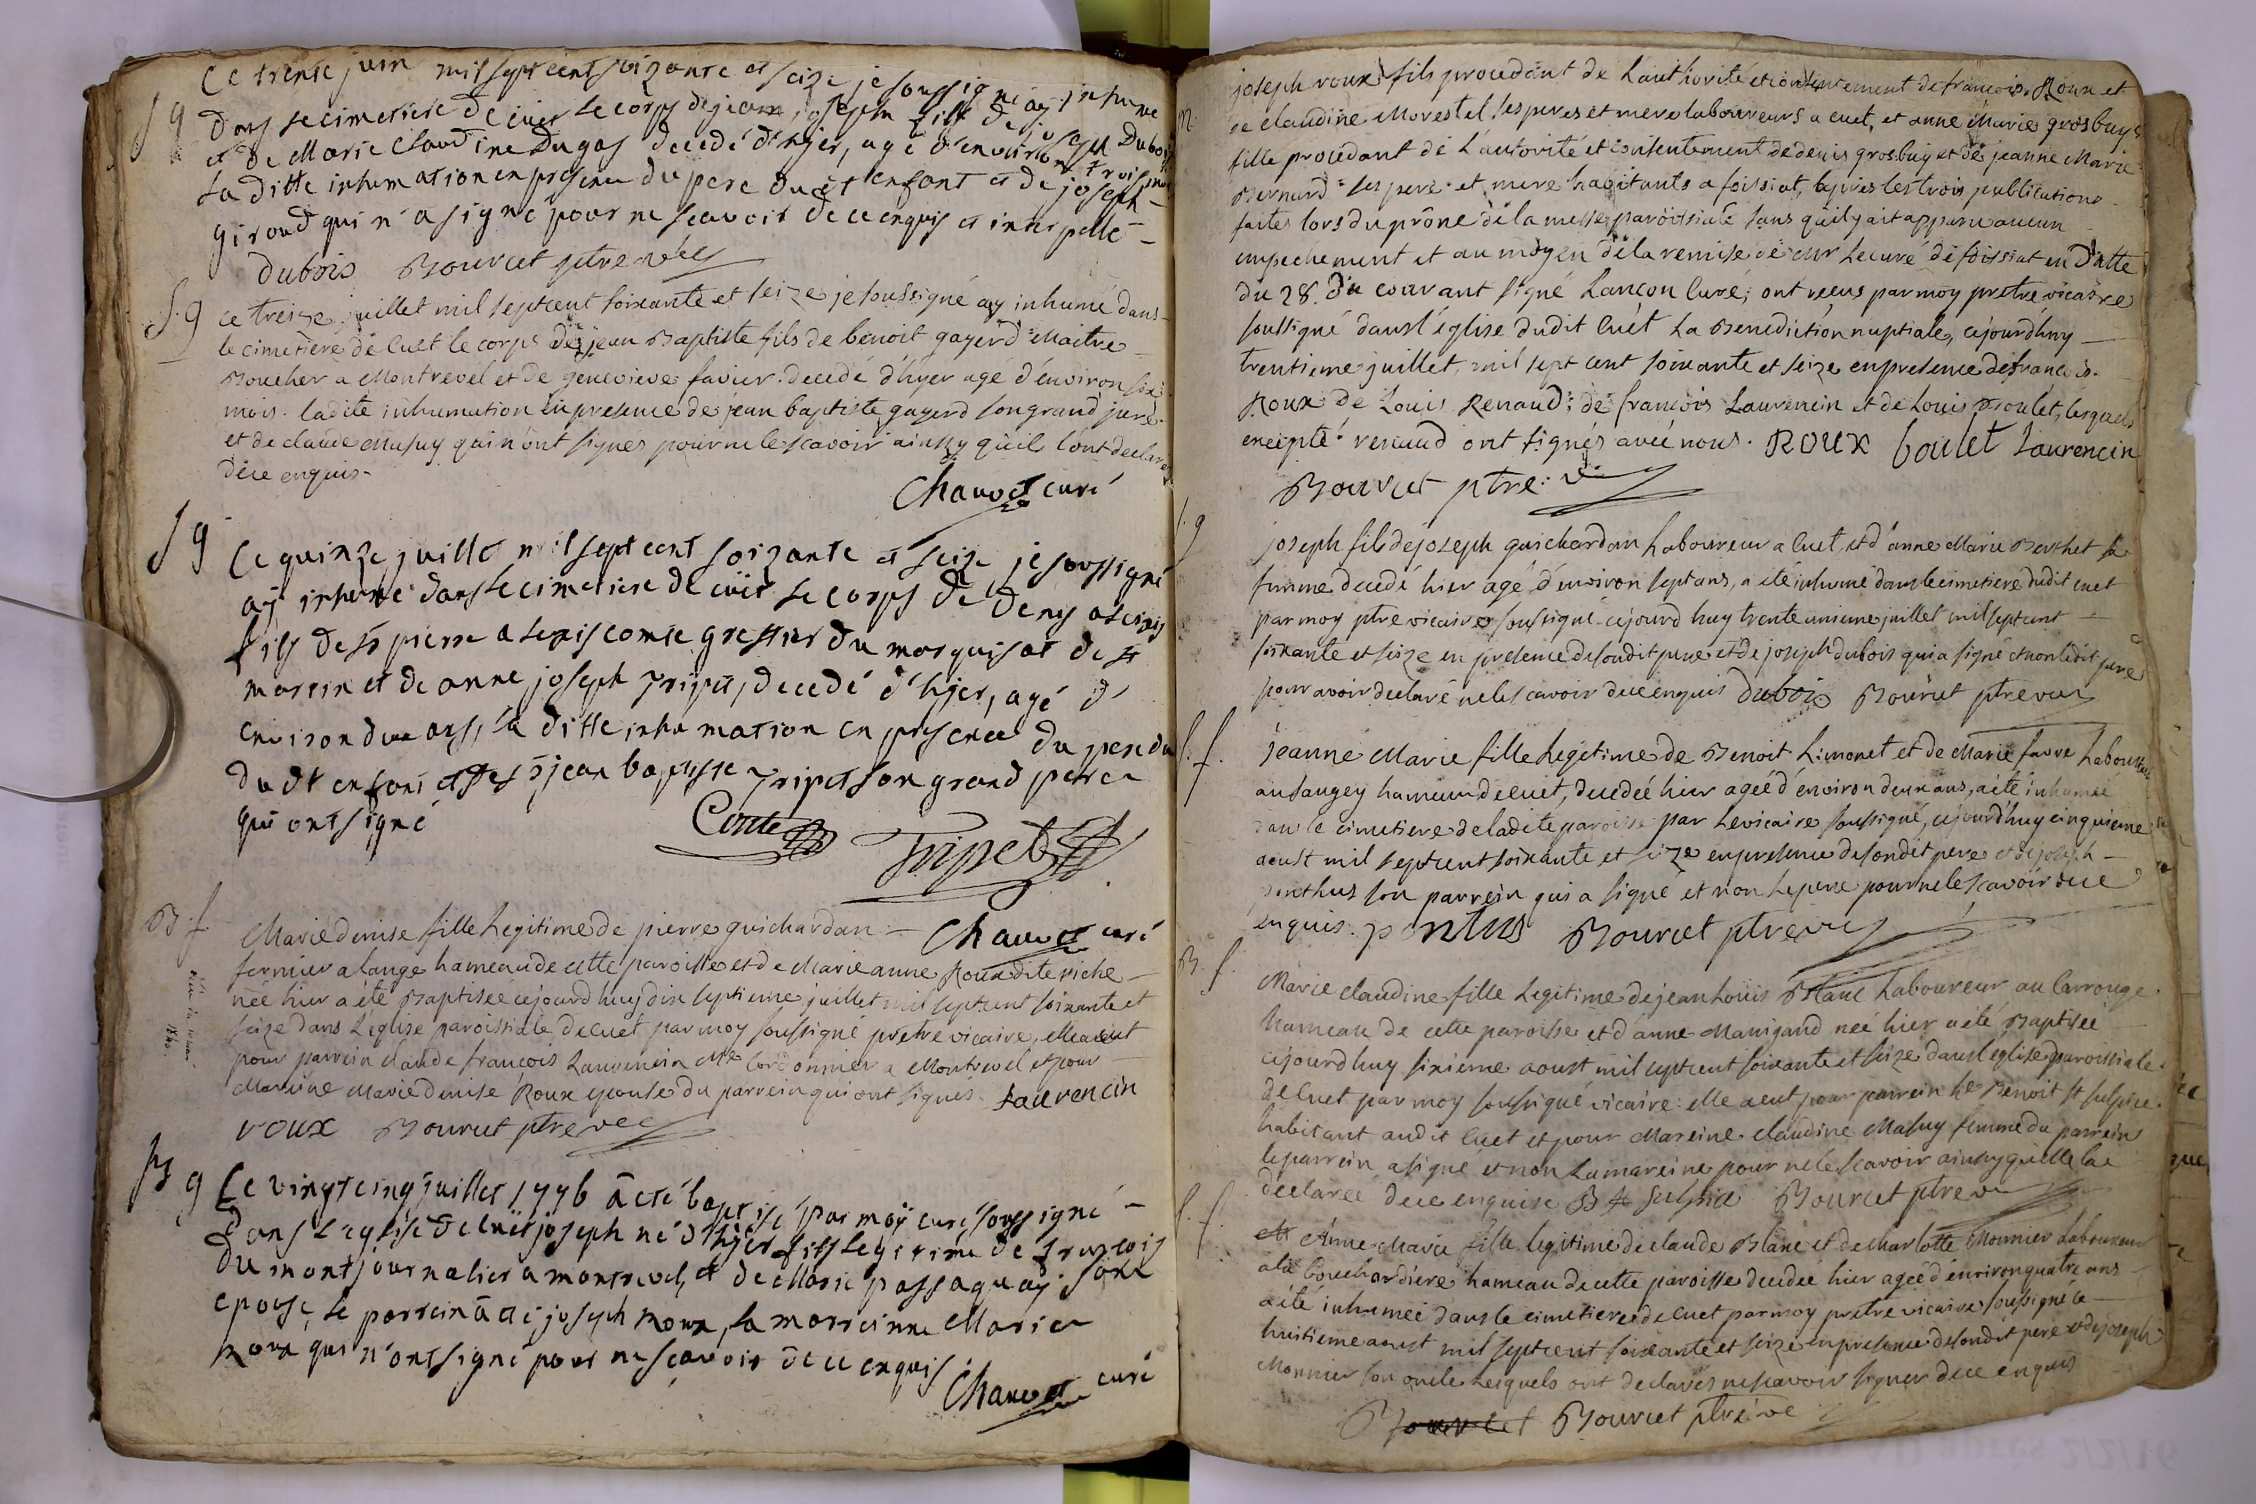 S g
Ce trente juin mil sept cent soizante et seize je soussigné aÿ inhumé
dans le cimetiere de cuet le corps de jean joseph fils de joseph Dubois
et de Marie Claudine Dugas decedé d'hÿer, agé d'environ trois
la ditte inhumation en presence du pere dudt enfant et de joseph
giroud qui n'a signé pour ne scavoir de ce enquis et interpellé
dubois Bourcet ptre vic
S. g
ce treize juillet mil septcent soixante et seize je soussigné ay inhumé dans
le cimetiere de Cuet le corps de jean Baptiste fils de benoit gayerd Maitre
Boucher a Montrevel et de genevieve favier. decedé d'hyer agé d'environ six
mois. ladite inhumation en presence de jean baptiste gayerd son grand
et de claude Masuy qui n'ont signes pour ne le scavoir ainsy qu'ils l'ont declaré
de ce enquis.
Chauvet curé
S g
Ce quinze juillet mil sept cent soizante et seize je soussigné
aÿ inhumé dans le cimetiere de cuet le corps de denys
fils de sr pierre comte greffier du marquisat de st
martin et de anne joseph Tripet, decedé d'hÿer, agé d'
environ deux ans, la ditte inhumation en presence du pere du
du dt enfant et de sr jean baptiste Tripet son grand pere
qui ont signé
Comte Tripet
Chauvet curé
B. f
Marie denise fille legitime de pierre guichardan
fermier a lange hameau de cette paroisse et de Marie anne Roux dite riche
née hier a été Baptisée cejourd'huy dix septieme juillet mil septcent soixante et
seize dans l'eglise paroissiale de cuet par moy soussigné prêtre vicaire, elle a eut
pour parrein claude françois Laurencin Me Cordonnier a Montrevel et pour
Mareine Marie denise Roux epouse du parrein qui ont signés. Laurencin
roux Bourcet ptre vic
B g
Le vingt cinq juillet 1776 a eté baptisé par moÿ curé soussigné
dans l'eglise de cuet joseph né d'hÿer fils legitime de françois
Du mont journalier a montrevel, et de Marie passaquaÿ son
epouse, le parrein a été joseph roux, la marreinne Marie
roux qui n'ont signé pour ne sçavoir de ce enquis.
Chauvet curé
M
joseph roux fils procedant de l'authorité et consentement de francois Roux et
de claudine Morestel ses peres et mere laboureurs a cuet, et anne Marie grosbuy
fille procedant de l'autorité et consentement de denis grosbuy et de jeanne Marie
Bernard ses pere et mere habitants a foissiat, apres les trois publications
faites lors du prône de la messe paroissiale sans qu'il y ait apparu aucun
empechement et au moyen de la remise de Mr le curé de foissiat en Datte
du 28. du courant signé Lançon Curé; ont reçus par moy pretre vicaire
soussigné dans l'église dudit Cuet la Benediction nuptiale, cejourdhuy
trentieme juillet, mil sept cent soixante et seize en presence de francois
Roux de Louis Renaud; de francois Laurencin et de Louis Boulet, lesquels
excepté renaud ont signés avec nous. ROUX boulet Laurencin
Bourcet ptre. vic
S. g
joseph fils de joseph guichardan laboureur a Cuet, et d'anne Marie Berthet sa
femme decedé hier agé d'environ sept ans, a été inhumé dans le cimetiere dudit cuet
par moy ptre vicaire soussigné cejourd'huy trente unieme juillet mil septcent
soixante et seize en presence de sondit pere et de joseph dubois qui a signé et non ledit pere
pour avoir declaré ne le scavoir de ce enquis dubois Bourcet ptre vic
S. f.
jeanne Marie fille legitime de Benoit Limonet et de Marie favre laboureurs
au saugey hameau de cuet, decedée hier ageé d'environ deux ans, a été inhumée
dans le cimetiere de ladite paroisse par le vicaire soussigné, cejourd'huy cinquieme
aoust mil septcent soixante et seize en presence de sondit pere et de joseph
ponthus son parrein qui a signé et non le pere pour ne le scavoir de ce
enquis. ponthus Bourcet ptre vic
B. f.
Marie claudine fille legitime de jean Louis Blanc laboureur au Carrouge
hameau de cette paroisse et d'anne Manigand née hier a été Baptisée
cejourdhuy sixieme aoust mil septcent soixante et seize dans l'eglise paroissiale
de cuet par moy soussigné vicaire: elle a eut pour parrein Benoit st sulpice
habitant audit Cuet et pour Mareine claudine Masuy femme du parrein
le parrein a signé et non la mareine pour ne le scavoir ainsy quelle l'ae
declarée de ce enquise B st sulpice Bourcet ptre vic
S. f.
Anne Marie fille legitime de claude Blanc et de charlotte Monnier laboureur
a la bouchardiere hameau de cette paroisse decedée hier ageé d'environ quatre ans
a été inhumeé dans le cimetiere de cuet par moy pretre vicaire soussigné le
huitieme aoust mil septcent soixante et seize en presence de sondit pere et de joseph
Monnier son oncle lesquels ont declarés ne scavoir signer de ce enquis
Bourcet Bourcet ptre vic